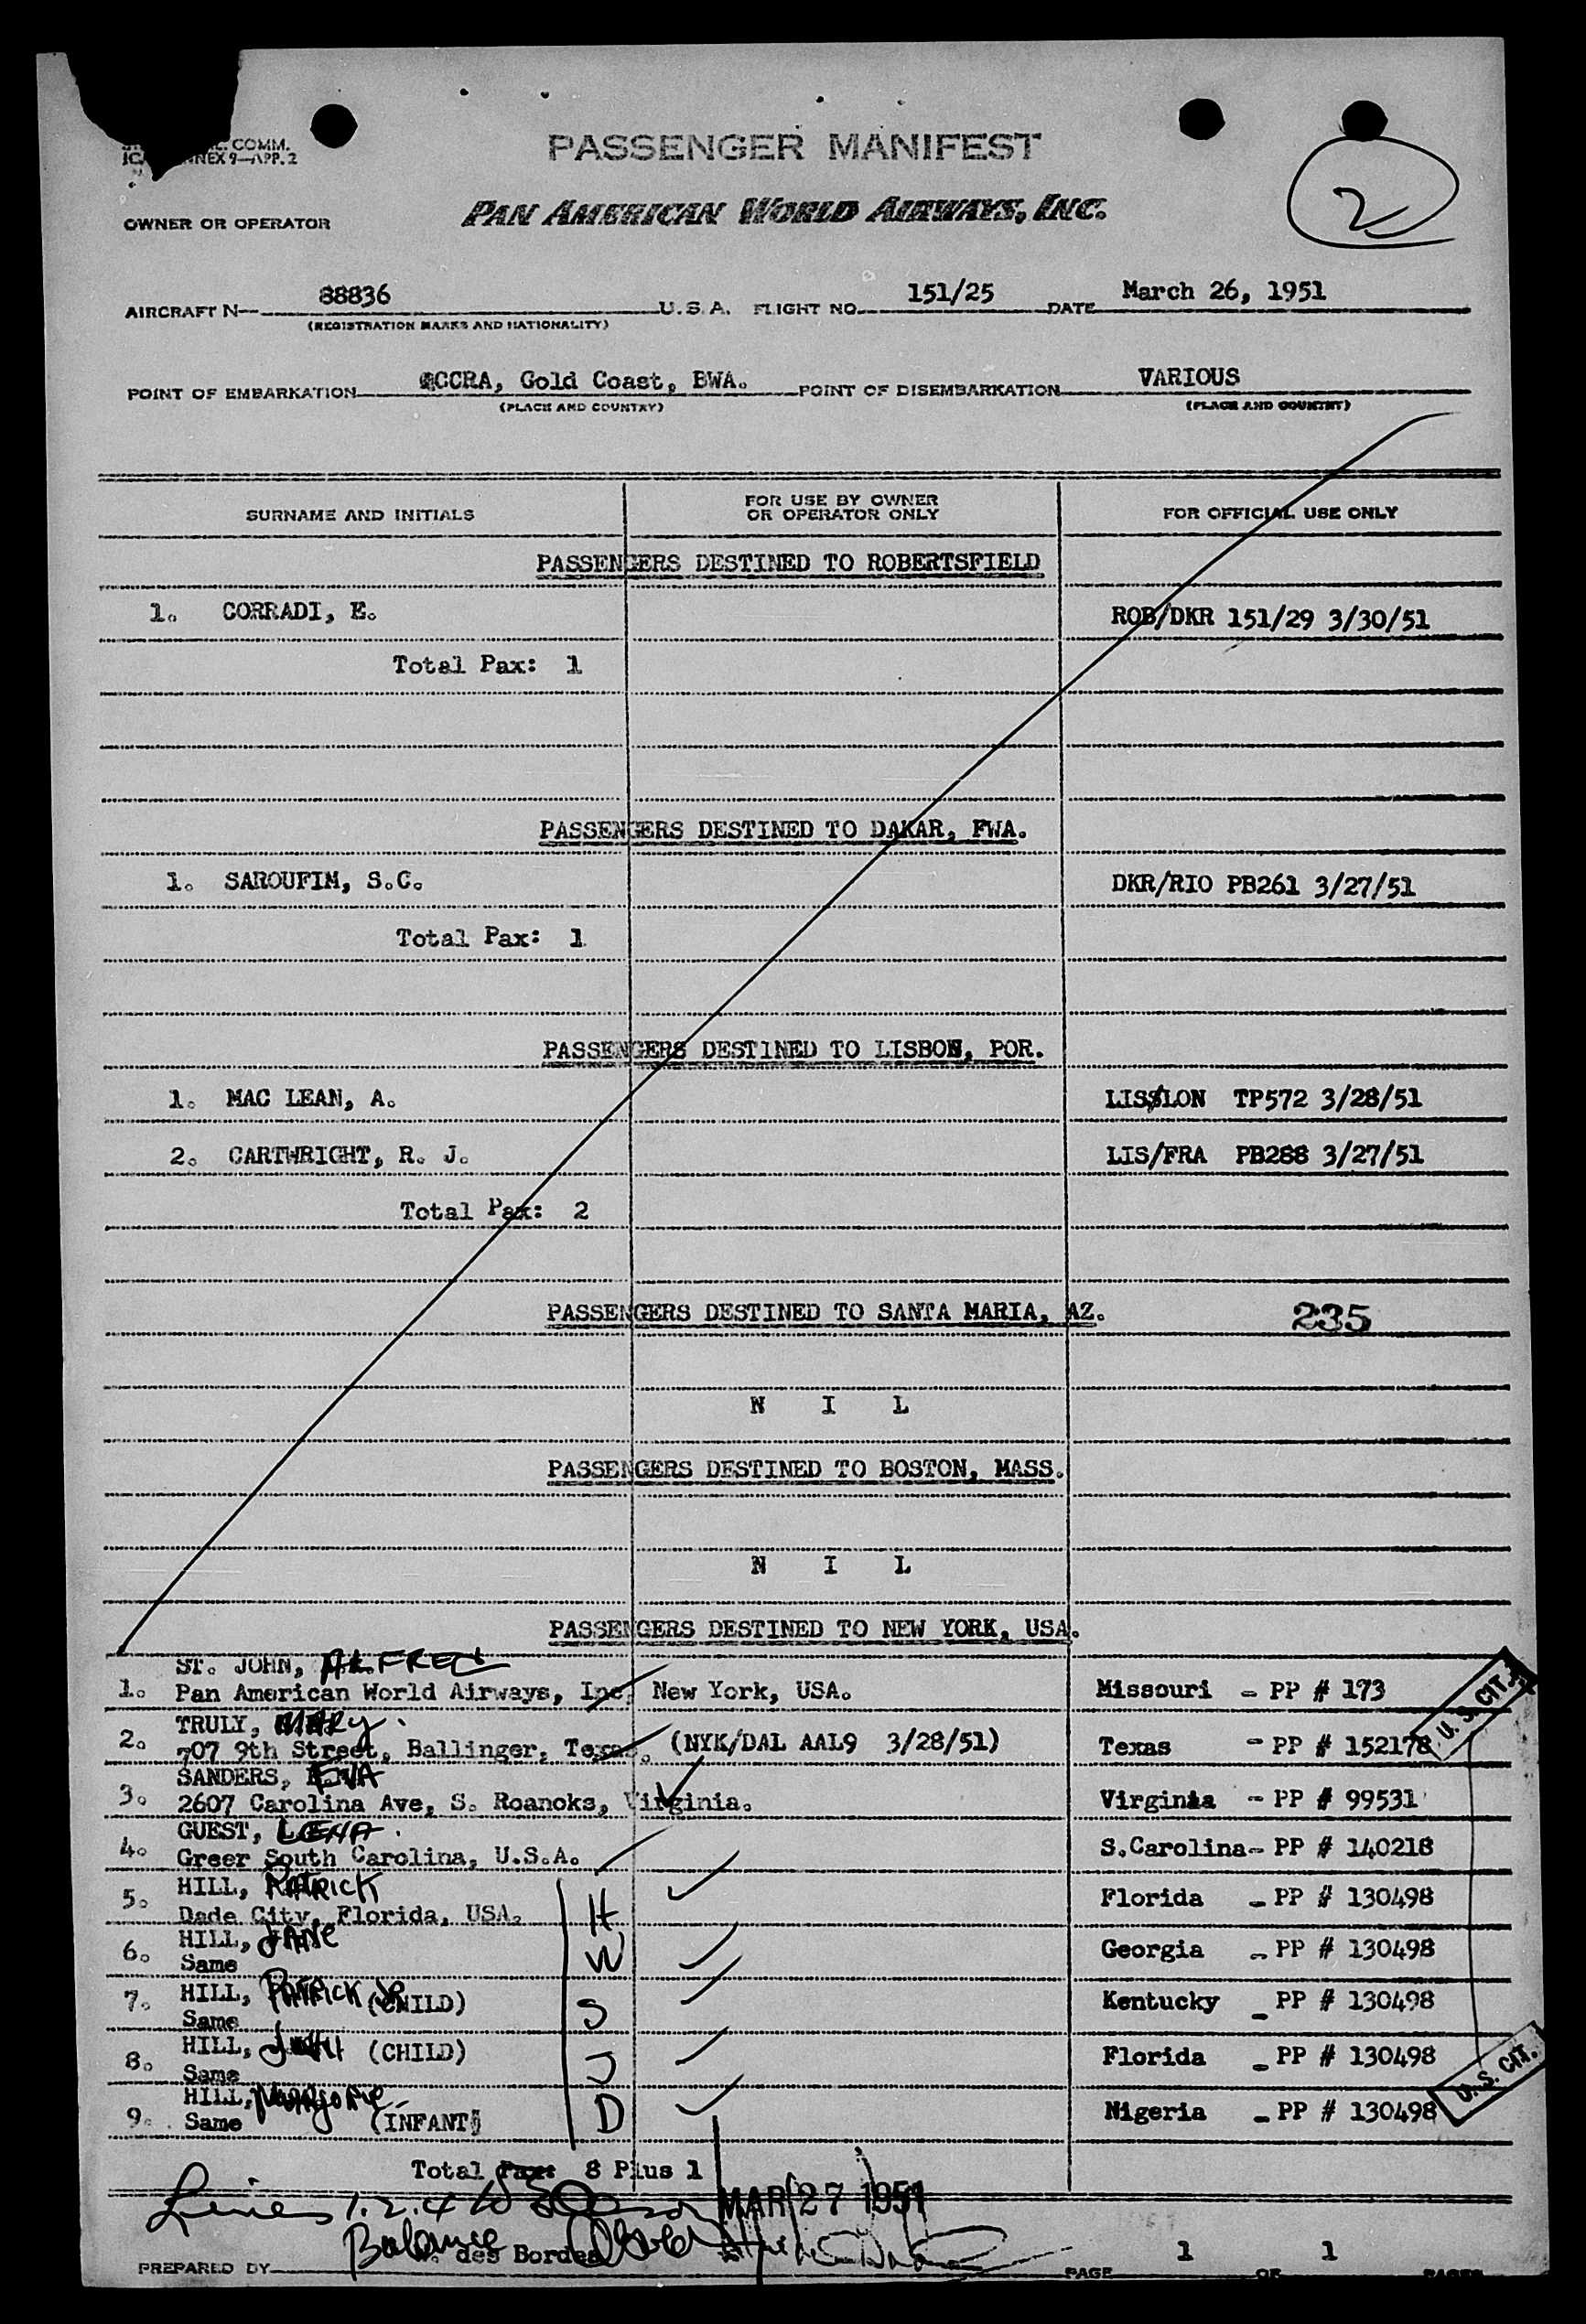 COMM.
NEX 9—APP. 2
PASSENGER MANIFEST
OWNER OR OPERATOR
PAN AMERICAN WORLD AIRWAYS, INC.
2
AIRCRAFT N— 88836 U.S.A. FLIGHT NO. 151/25 DATE March 26, 1951
(REGISTRATION MARKS AND NATIONALITY)
POINT OF EMBARKATION ACCRA, Gold Coast, BWA. POINT OF DISEMBARKATION VARIOUS
(PLACE AND COUNTRY) (PLACE AND COUNTRY)
SURNAME AND INITIALS
FOR USE BY OWNER
OR OPERATOR ONLY
FOR OFFICIAL USE ONLY
PASSENGERS DESTINED TO ROBERTSFIELD
1. CORRADI, E. ROB/DKR 151/29 3/30/51
Total Pax: 1
PASSENGERS DESTINED TO DAKAR, FWA.
1. SAROUFIM, S.C. DKR/RIO PB261 3/27/51
Total Pax: 1
PASSENGERS DESTINED TO LISBON, POR.
1. MAC LEAN, A. LIS/LON TP572 3/28/51
2. CARTWRIGHT, R. J. LIS/FRA PB288 3/27/51
Total Pax: 2
PASSENGERS DESTINED TO SANTA MARIA, AZ.
235
N I L
PASSENGERS DESTINED TO BOSTON, MASS.
N I L
PASSENGERS DESTINED TO NEW YORK, USA.
ST. JOHN, ALFRED
1. Pan American World Airways, Inc, New York, USA. Missouri - PP # 173
U.S. CIT.
TRULY, MARY.
2. 707 9th Street, Ballinger, Texas. (NYK/DAL AAL9 3/28/51) Texas - PP # 152178
SANDERS, EVA
3. 2607 Carolina Ave, S. Roanoke, Virginia. Virginia - PP # 99531
GUEST, LENA.
4. Greer South Carolina, U.S.A. S.Carolina- PP # 140218
HILL, PATRICK
5. Dade City, Florida, USA. H Florida - PP # 130498
HILL, JANE
6. Same W Georgia - PP # 130498
HILL, PATRICK JR (CHILD)
7. Same S Kentucky - PP # 130498
HILL, (CHILD)
8. Same J Florida - PP # 130498
U.S. CIT.
HILL, MARJORIE
9. Same (INFANT) D Nigeria - PP # 130498
Total Pax: 8 Plus 1
Lines 1.2.4 to
MAR 27 1951
Balance
des Bordes
PREPARED BY
PAGE 1 OF 1 PAGES